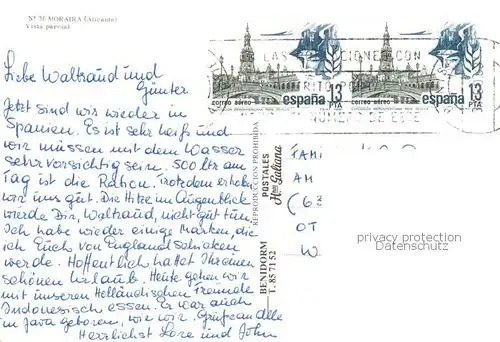 Nº 36 MORAIRA (Alicante)
Vista parcial
Liebe Waltraud und
Günter
Jetzt sind wir wieder in
Spanien. Es ist sehr heiß und
wir müssen mit dem Wasser
sehr vorsichtig sein. 500 ltr am
Tag ist die Ration. Trotzdem erholen
wir uns gut. Die Hitze im Augenblick
würde Dir, Waltraud, nicht gut tun,
Ich habe wieder einige Marken, die
ich Euch von England schicken
werde. Hoffentlich hattet Ihr einen
schönen Urlaub. Heute gehen wir
mit unseren Holländischen Freunde
Indonesisch essen. Er war auch
in Java geboren, wie wir. Grüße an alle
Herrlichst Lore und John
correo aéreo
españa
13
PTA
correo aéreo
españa
13
PTA
NUMERO DE
REPRODUCCION PROHIBIDA
POSTALES
Hnos Galiana
BENIDORM
T. 85 71 52
FAMI
AM
(6
OT
W
privacy protection
Datenschutz